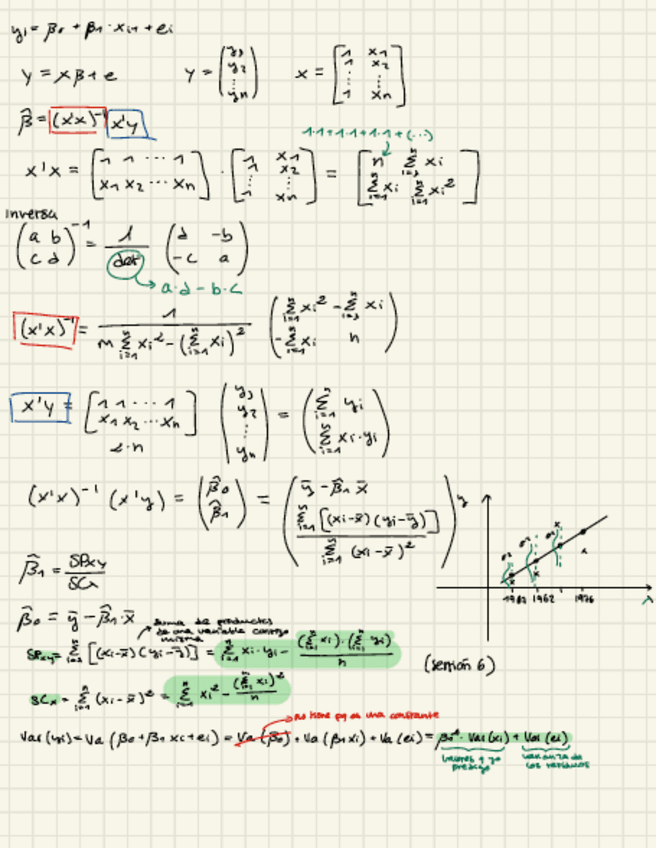 yi = β0 + β1 · xi1 + ei
Y = Xβ + e   Y = (y1 y2 ⋮ yn)   X = [1 x1; 1 x2; ⋮ ⋮; 1 xn]
β̂ = (x'x)⁻¹ x'y
1·1+1·1+1·1+(...)
x'x = [1 1 ··· 1; x1 x2 ··· xn] · [1 x1; x2; ⋮ ⋮; 1 xn] = [n Σxi; Σxi Σxi²]
inversa
(a b; c d)⁻¹ = 1/det (d -b; -c a)
a·d - b·c
(x'x)⁻¹ = 1/(n Σxi² - (Σxi)²) (Σxi² -Σxi; -Σxi n)
x'y = [1 1 ···· 1; x1 x2 ··· xn] (y1 y2 ⋮ yn) = (Σ yi; Σ xi·yi)
2·n
(x'x)⁻¹ (x'y) = (β̂0; β̂1) = (ȳ - β̂1 x̄; Σ[(xi-x̄)(yi-ȳ)] / Σ(xi-x̄)²)
y
σ² σ² σ²
1962 1976
β̂1 = SPxy/SCx
β̂0 = ȳ - β̂1·x̄
suma de productos
de una variable consigo
misma
SPxy = Σ[(xi-x̄)(yi-ȳ)] = Σ xi·yi - (Σxi)·(Σyi)/n
(sesión 6)
SCx = Σ(xi-x̄)² = Σ xi² - (Σxi)²/n
no tiene pq es una constante
Var(yi) = Va(β0+β1 xi+ei) = Va(β0) + Va(β1xi) + Va(ei) = · Var(xi) + Var(ei)
valores q yo
varianza de
los residuos